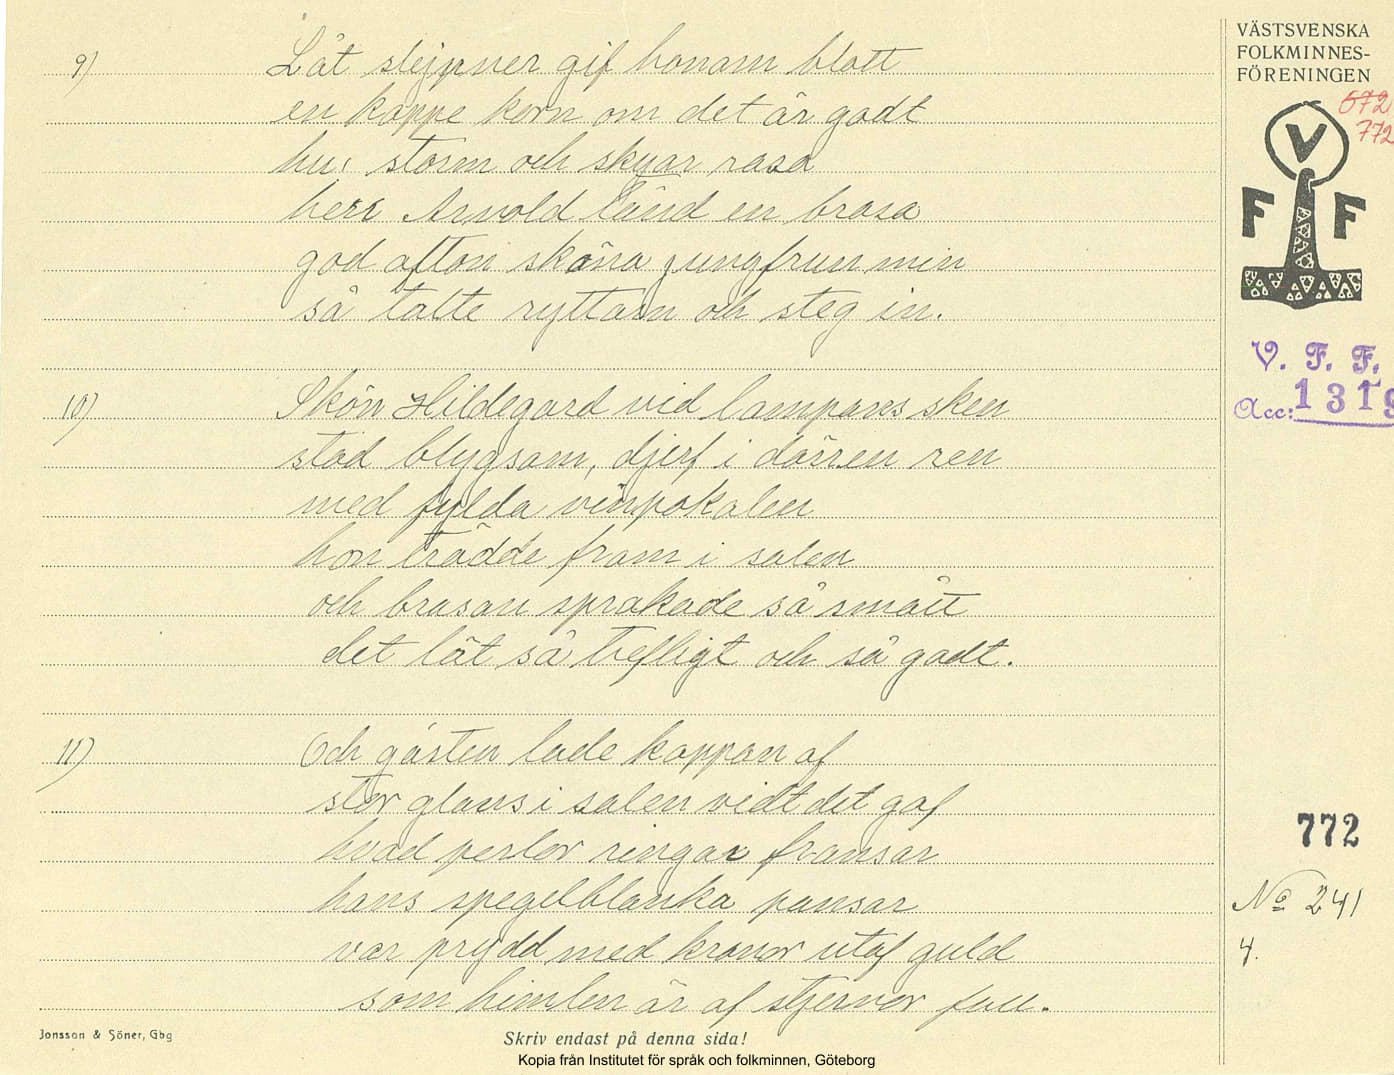 9) Låt slejpner gif honom blott
en kappe korn om det är godt
hu! storm och skyar rasa
herr Arvold tänd en brasa
god afton sköna jungfrun min
så talte ryttarn och steg in.
10) Skön Hildegard vid lampans sken
stod blygsam, djerf i dörren ren
med fylda vinpokalen
hon trädde fram i salen
och brasan sprakade så smått
det lät så trefligt och så godt.
11) Och gästen lade kappan af
stor glans i salen vidt det gaf
hvad perlor ringar fransar
hans spegelblanka pansar
var prydd med kronor utaf guld
som himlen är af stjernor full.
VÄSTSVENSKA
FOLKMINNES-
FÖRENINGEN
672
772
V
F F
V. F. F.
Acc: 1319
772
No 241
4.
Jonsson & Söner, Gbg
Skriv endast på denna sida!
Kopia från Institutet för språk och folkminnen, Göteborg